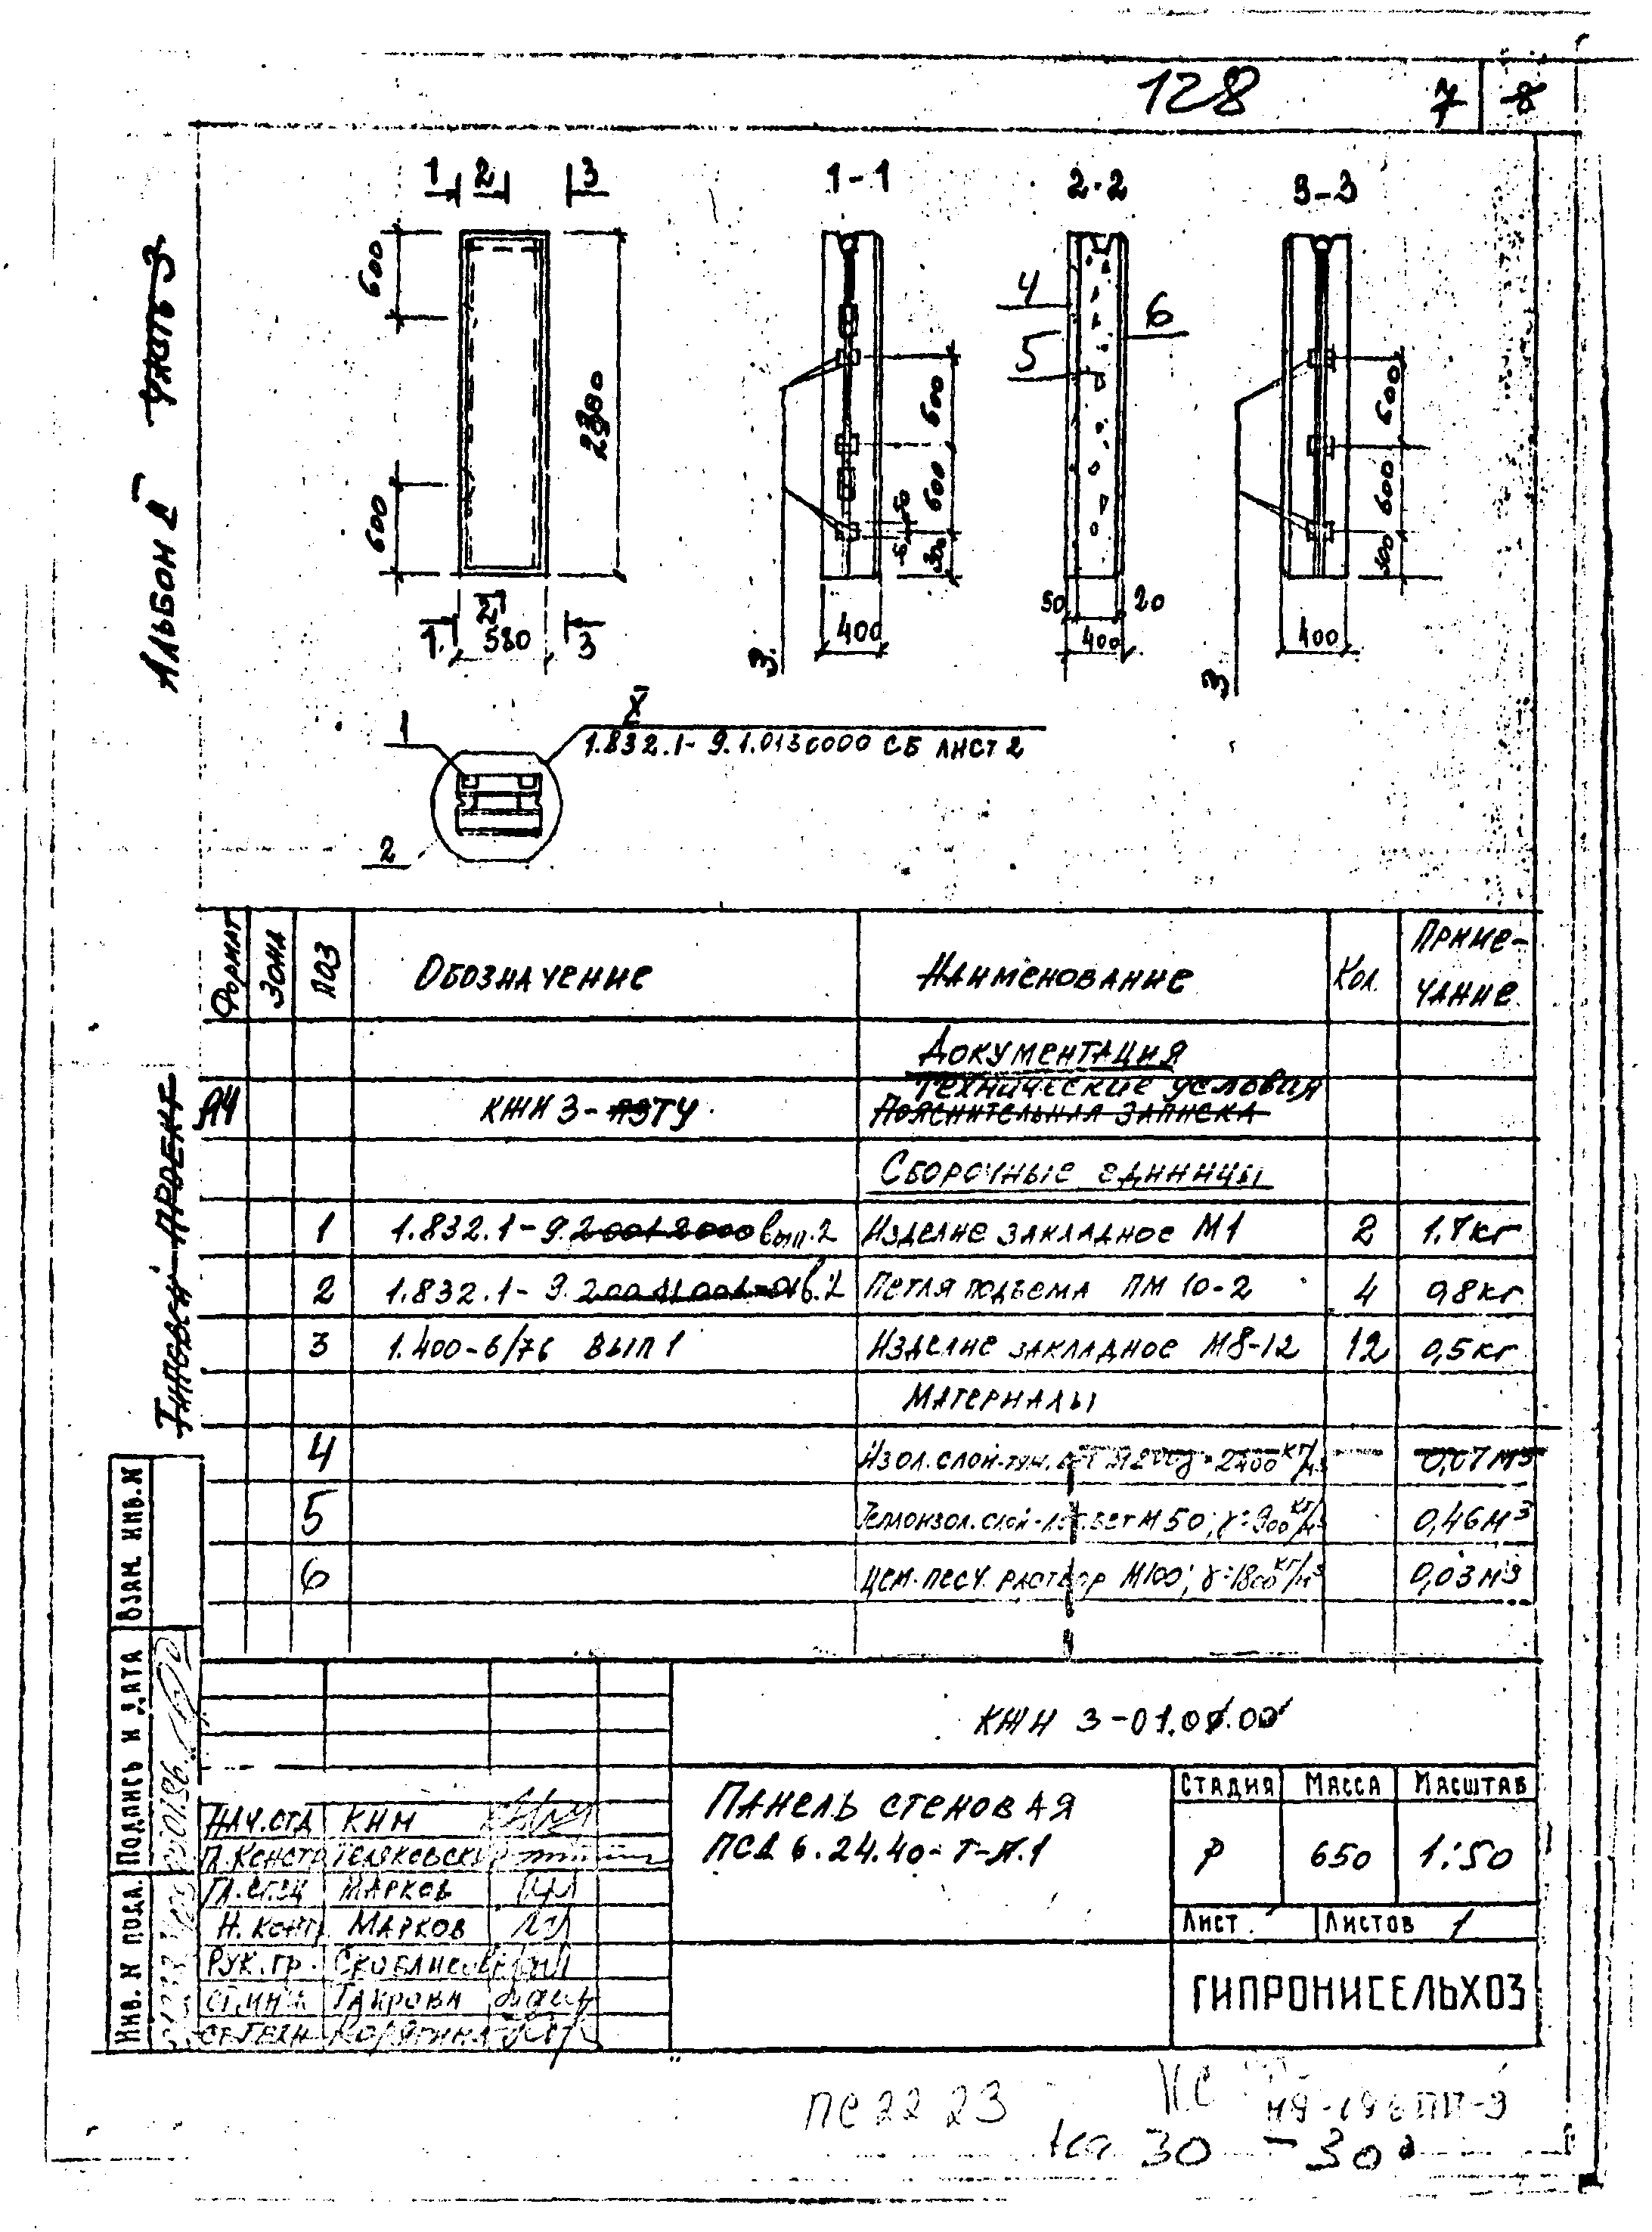 128
7 8
1 2 3
1-1
2-2
3-3
600
600
2380
580
1 2 3
600
600
300
400
3
4
5
6
50 20
400
600
600
300
400
3
Альбом II Часть 3
1
2
I
1.832.1-9.1.0130000 СБ лист 2
Формат Зона Поз Обозначение Наименование Кол. Примечание
Документация
Технические условия
А4 КЖИ 3-ПЗ ТУ Пояснительная записка
Сборочные единицы
1 1.832.1-9.20012000 вып.2 Изделие закладное М1 2 1.7кг
2 1.832.1-9. в.2 Петля подъема ПМ 10-2 4 0,8кг
3 1.400-6/76 вып 1 Изделие закладное М8-12 12 0,5кг
Материалы
4 Изол.слой 2400 кг/м3 0,07м3
5 Теплоизол.слой М50; γ=900 кг/м3 0,46м3
6 Цем.песч. раствор М100; γ=1800 кг/м3 0,03м3
Типовой проект
Взам. инв.N
Подпись и дата
Инв. N подл.
КЖИ 3-01.01.00
Панель стеновая
ПСД 6.24.40-Т-П.1
Стадия Масса Масштаб
Р 650 1:50
Лист Листов 1
ГИПРОНИСЕЛЬХОЗ
Нач.отд Ким
Гл.спец Марков
Н. контр. Марков
Рук.гр.
Ст.инж.
Ст.техн Корягина
ПС 22 23
30 - 30